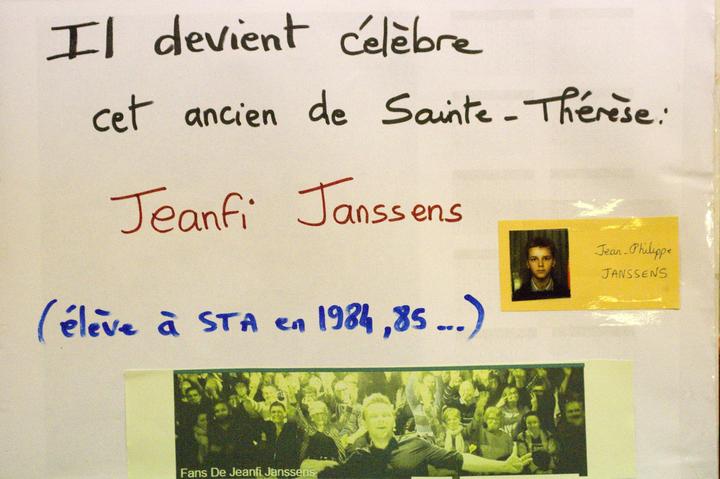 Il devient célèbre
cet ancien de Sainte-Thérèse:
Jeanfi Janssens
Jean-Philippe
JANSSENS
(élève à STA en 1984,85...)
Fans De Jeanfi Janssens